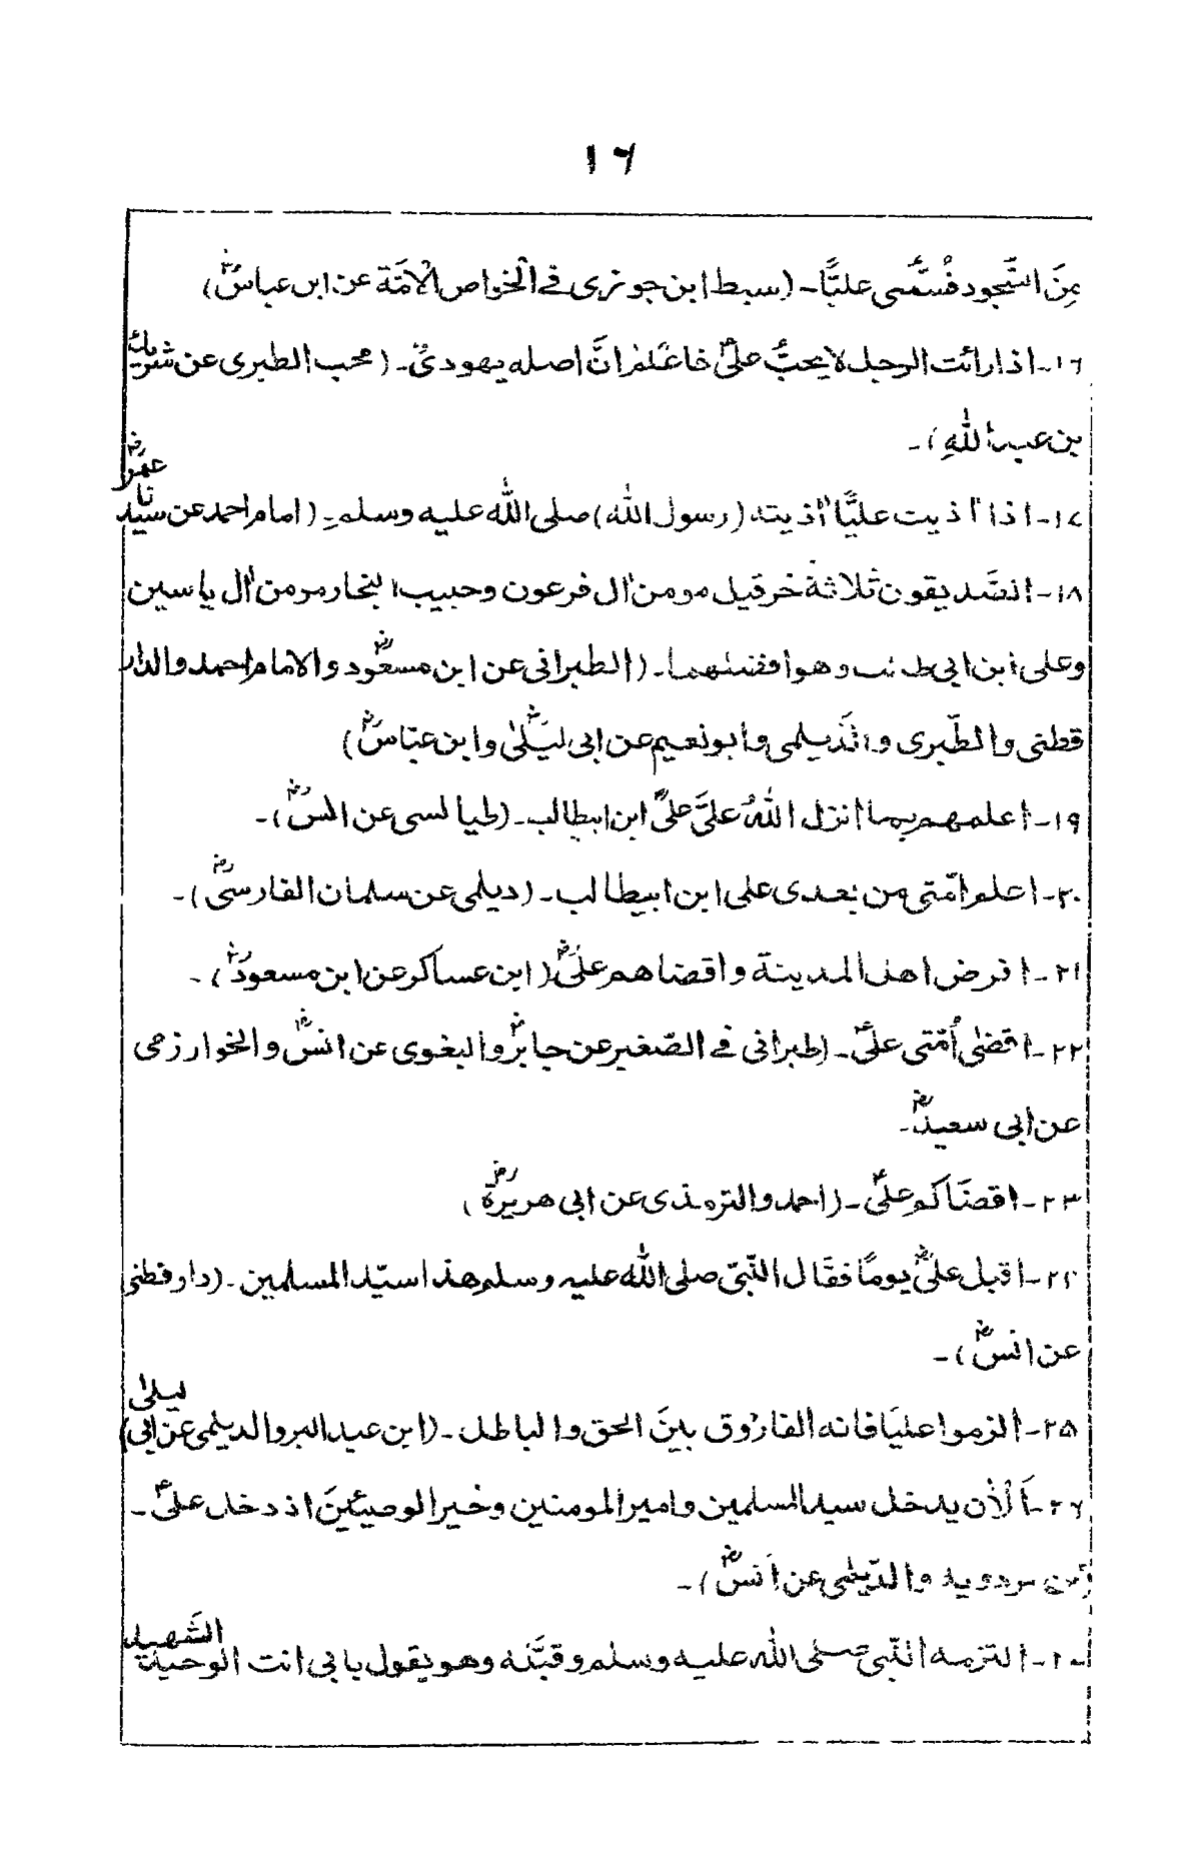 ١٦
مِنَ السُّجود فسُمِّى عليًّا۔ (سبط ابن جوزى فے الخواص الاُمّة عن ابن عباسؓ)
١٦۔ اذا رائت الرجل لا يحبُّ علىٌّ فاعلم انَّ اصله يهودىٌّ۔ (محب الطبرى عن شريك
بن عبد اللهِ)۔
١٧۔ اذا آذيت عليًّا آذيته (رسول الله) صلى الله عليه وسلم۔ (امام احمد عن سيدنا عمرؓ
١٨۔ الصّديقون ثلاثة خرقيل مومن آل فرعون وحبيب النجار مومن آل ياسين
وعلى ابن ابى طالب وهو افضلهما۔ (الطبرانى عن ابن مسعودؓ والامام احمد والدار
قطنى والطّبرى والدّيلمى وابونعيم عن ابى ليلىٰؓ وابن عبّاسؓ)
١٩۔ اعلمهم بما انزل اللهُ علىَّ علىٌّ ابن ابيطالب۔ (طيالسى عن انسؓ)۔
٢٠۔ اعلم امّتى من بعدى على ابن ابيطالب۔ (ديلمى عن سلمان الفارسىؓ)۔
٢١۔ افرض اهل المدينة واقضاهم علىؓ (ابن عساكر عن ابن مسعودؓ)۔
٢٢۔ اقضىٰ اُمّتى علىٌّ۔ (طبرانى فے الصّغير عن جابرؓ والبغوى عن انسؓ والخوارزمى
عن ابى سعيدؓ۔
٢٣۔ اقضَاكم علىٌّ۔ (احمد والترمذى عن ابى هريرةؓ)
٢٤۔ اقبل علىؓ يومًا فقَال النّبىّ صلى الله عليه وسلم هذا سيّد المسلمين۔ (دار قطنى
عن انسؓ)۔
٢٥۔ الزموا عليَا فانه الفارُوق بينَ الحق والباطل۔ (ابن عبد البر والديلمى عن ابى ليلىٰ)
٢٦۔ اَلْاٰن يدخل سيد المسلمين وامير المومنين وخير الوصيّينَ اذ دخل علىٌّ۔
ابن مردويه والدّيلمى عن اَنسؓ)۔
التزمه النّبى صلى الله عليه وسلم وقبَّله وهو يقول بابى انت الوحيد الشَّهيد